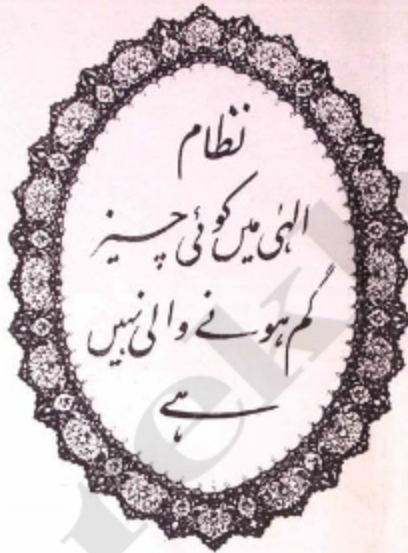 نظام
الہٰی میں کوئی چیز
گم ہونے والی نہیں
ہے